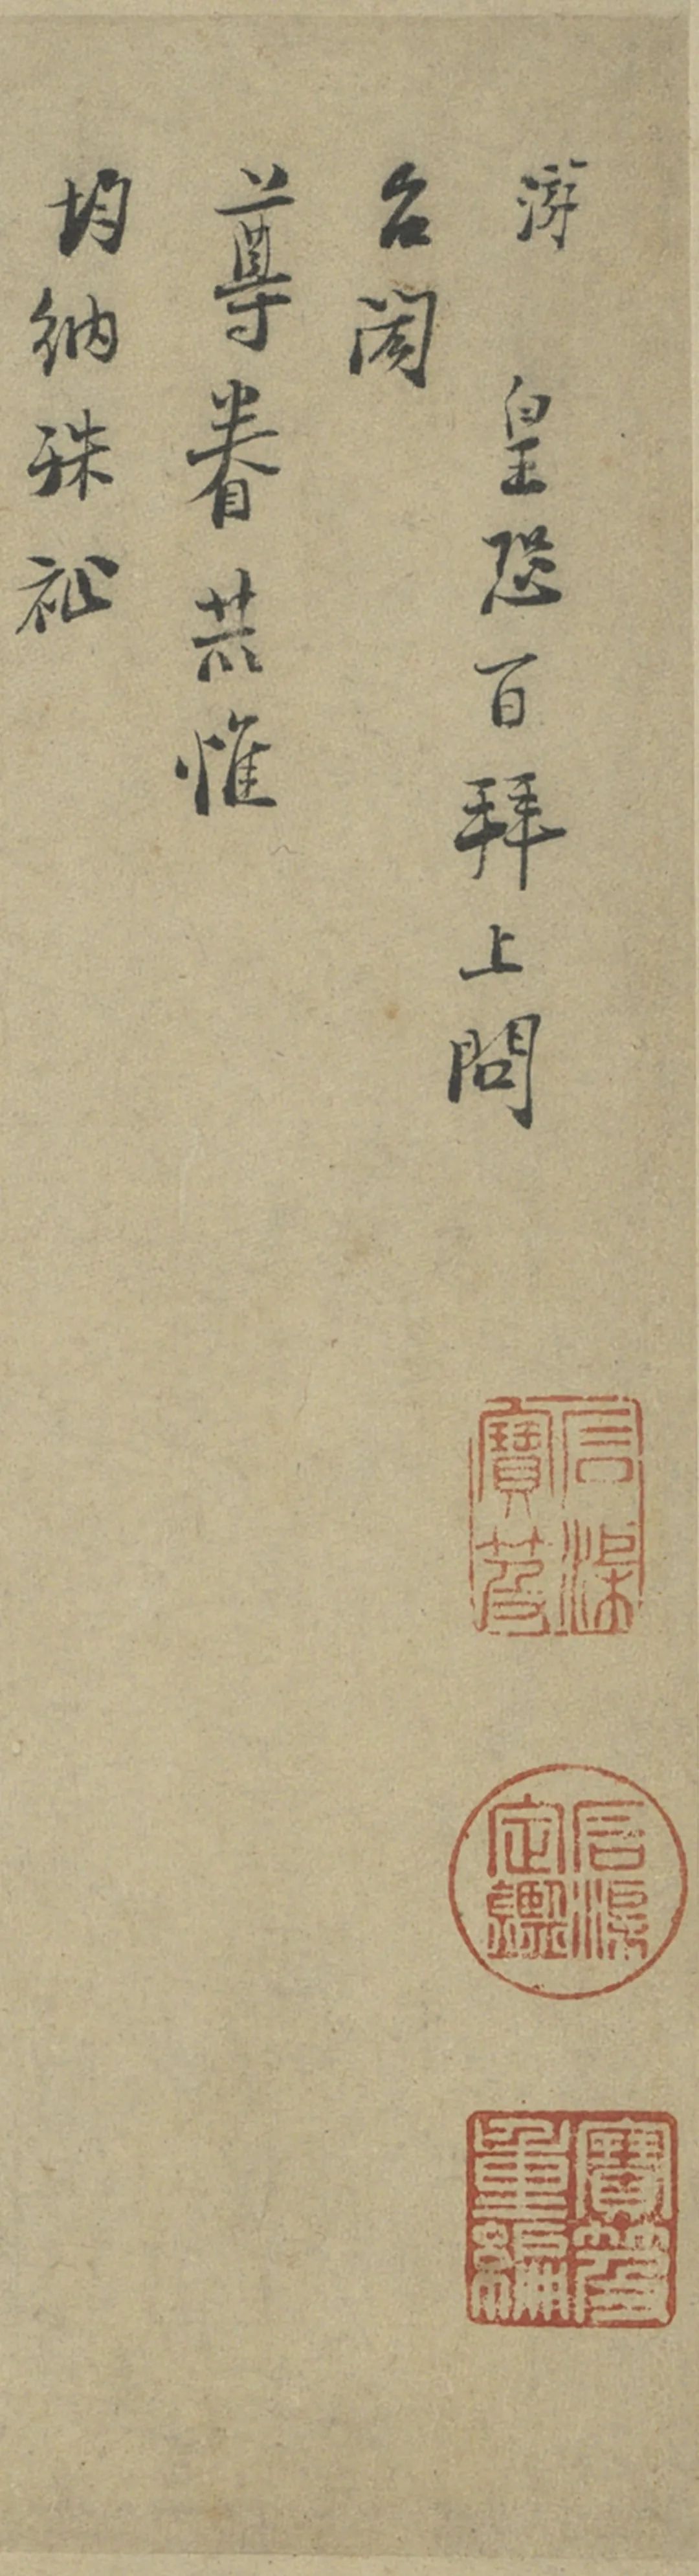 游 皇恐百拜上問
台閤
尊眷共惟
均納殊祉
石渠
寶笈
石渠
定鑑
寶笈
重編